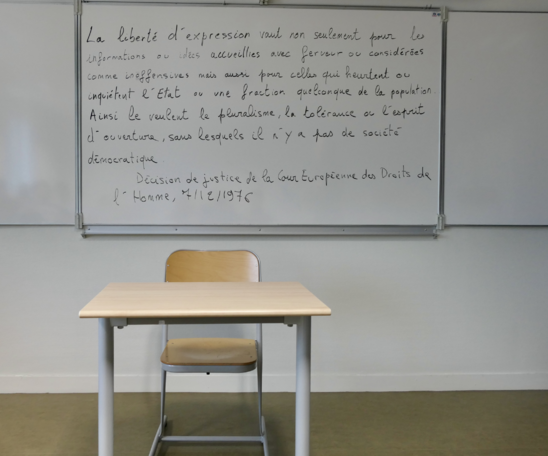 La liberté d'expression vaut non seulement pour les
informations ou idées accueillies avec ferveur ou considérées
comme inoffensives mais aussi pour celles qui heurtent ou
inquiètent l'État ou une fraction quelconque de la population.
Ainsi le veulent le pluralisme, la tolérance ou l'esprit
d'ouverture, sans lesquels il n'y a pas de société
démocratique
Décision de justice de la Cour Européenne des Droits de
l'Homme, 7/12/1976